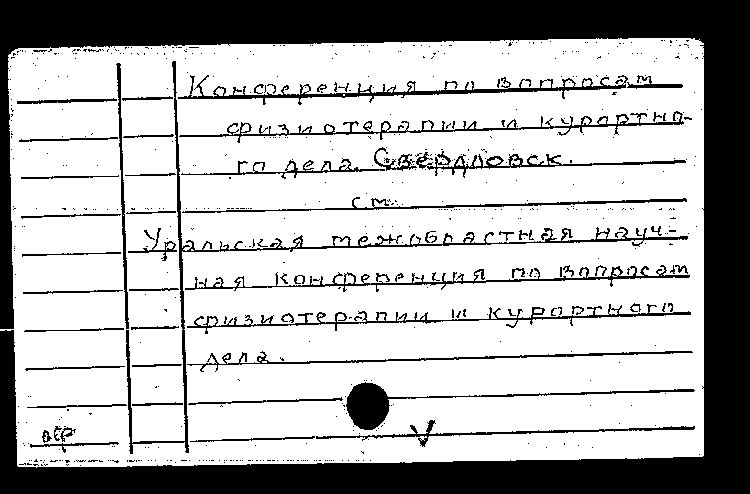 Конференция по вопросам
физиотерапии и курортно-
го дела. Свердловск.
см.
Уральская межобластная науч-
ная конференция по вопросам
физиотерапии и курортного
дела.
V